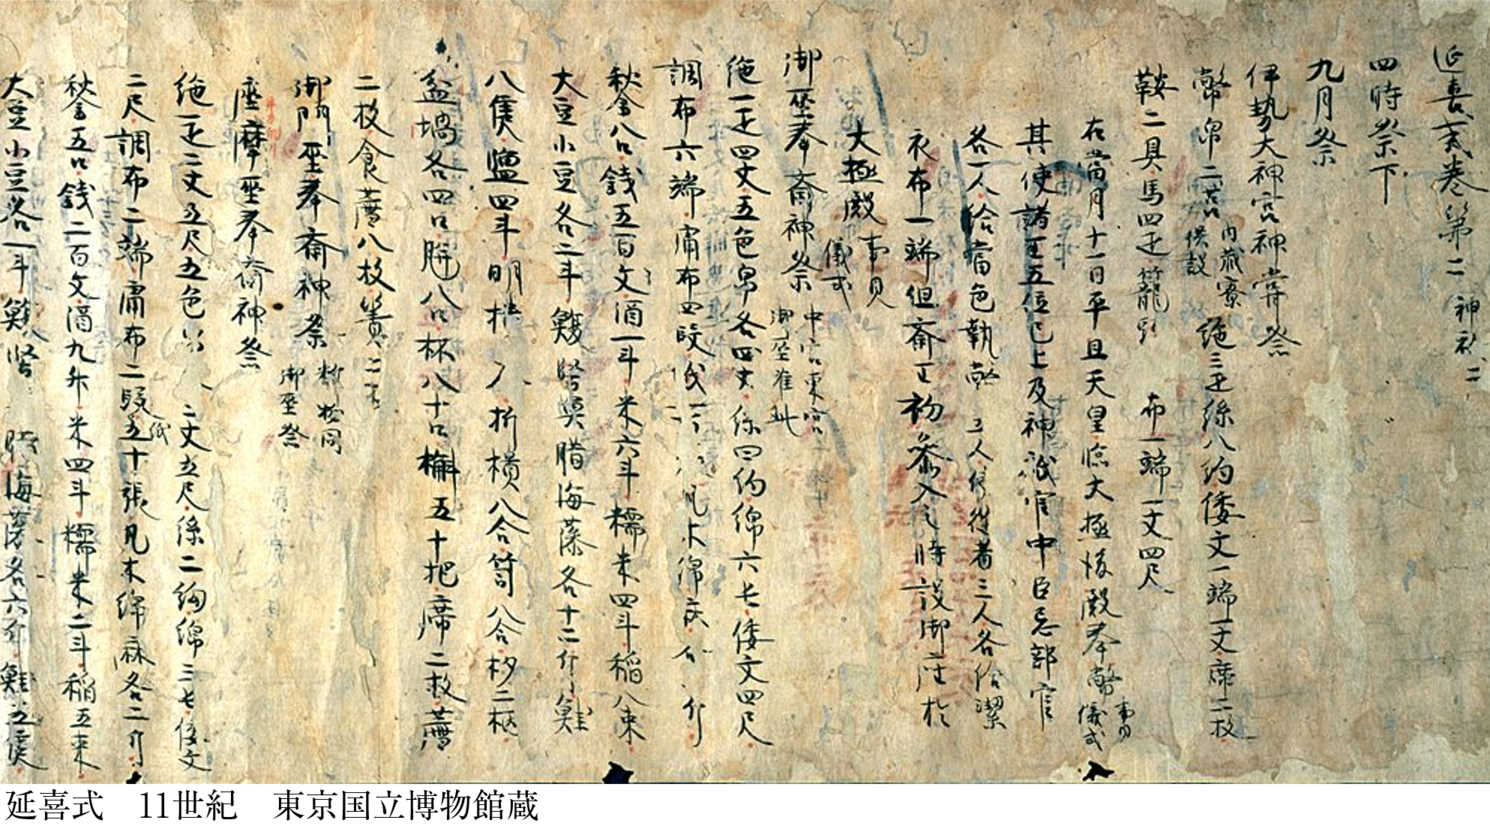 延喜式巻第二 神祇二
四時祭下
九月祭
伊勢大神宮神嘗祭
幣帛二 内蔵寮供設 絁三疋絲八絇倭文一端一丈席二枚
鞍二具馬四疋籠 布一端一丈四尺
右當月十一日平旦天皇臨大極後殿奉幣 事見儀式
其使諸王五位已上及神祇官中臣忌部官
各一人給當色執幣 三人 従者三人各給潔
衣布一端但斎王初参入之時設御座於
大極殿 事見儀式
御巫奉斎神祭 中宮東宮御巫准此
絁一疋四丈五色帛各四丈絲四絇綿六屯倭文四尺
調布六端庸布四段 凡木綿
秋各八口銭五百文酒一斗米六斗糯米四斗稲八束
大豆小豆各二斗鰒堅魚腊海藻各十二斤鮭
八隻塩四斗明櫃 折櫃八合筥八合杉二柄
盆堝各四口 八口杯八十口槲五十把席二枚薦
二枚食薦八枚簀二
御門巫奉斎神祭 御巫祭
座摩巫奉斎神祭
絁一疋二丈五尺五色 二丈五尺絲二絇綿三屯倭文
二尺調布二端庸布二段 五十張凡木綿麻各二斤
五口銭二百文酒九升米四斗糯米二斗稲五束
大豆小豆各一斗鰒堅 海藻各六斤鮭五隻
延喜式 11世紀 東京国立博物館蔵